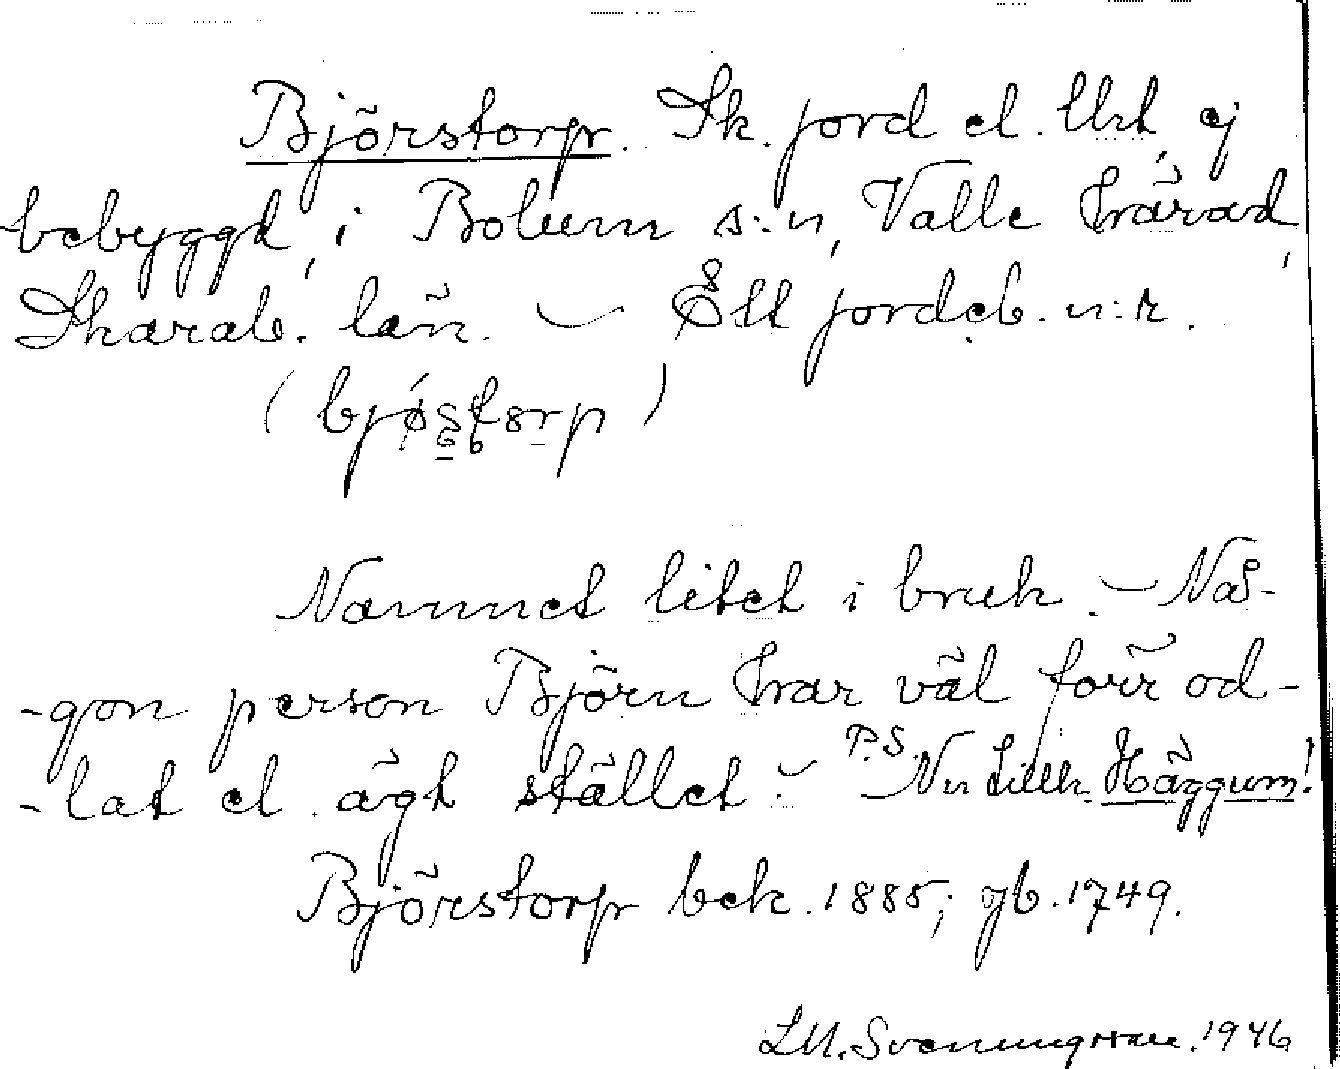 Björstorp. Sk. jord el. Urt, ej
bebyggd, i Bolum s:n, Valle härad,
Skarab. län. — Ett jordeb. n:r.
( bjøstorp )
Namnet litet i bruk. — Nå-
-gon person Björn har väl förr od-
-lat el. ägt stället. — P.S. Nu Lilla Häggum!
Björstorp bek. 1885; jb. 1749.
1946